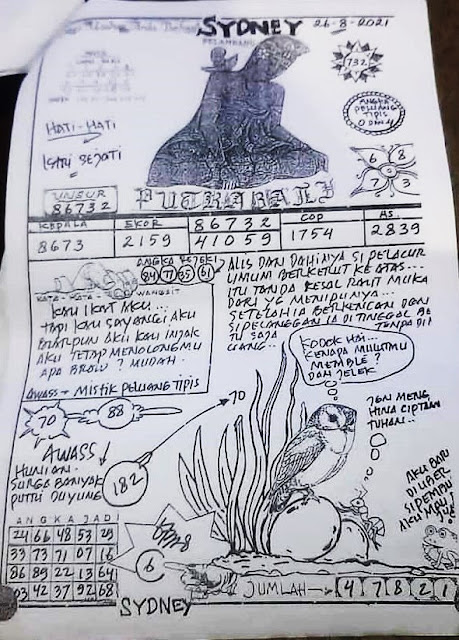 SYDNEY
26-8-2021
PELAMBANG
732
HATI-HATI
ANGKA
PELUANG
TIPIS
0 DAN 4
ISARI SEJATI
6 8
7 3
UNSUR
86732
PUTRABALI
KEPALA EKOR 86732 COP AS
8673 2159 41059 1754 2839
ANGKA REJEKI
84 77 65 61
KATA-KATA WANGSIT
KAU IKAT AKU...
TAPI KAU SAYANGI AKU
BIARPUN AKU KAU INJAK
AKU TETAP MENOLONGMU
APA BROLU? MUDAH.
ALIS DAN DAHINYA SI PELACUR
UMUM BERKERUT KE ATAS...
ITU TANDA KESAL RAUT MUKA
DARI YG MENIPUNYA...
SETELAH IA BERKENCAN DGN
SI PELANGGAN IA DI TINGGAL BE
TU SAJA TANPA DI
UANG..
AWASS → MISTIK PELUANG TIPIS
70 88
KODOK HAI...
KENAPA MULUTMU
MEMBLE?
DAN JELEK
70
JGN MENG
HINA CIPTAAN
TUHAN..
AWASS
HUNIAN
SURGA BANYAK
PUTRI DUYUNG
182
AKU BARU
DI UBER
SI PEMBU
ANGKA JADI
24 66 48 53 29
33 73 71 07 16
86 89 22 13 64
03 42 37 92 68
6
JUMLAH → 4 7 8 2 1
SYDNEY